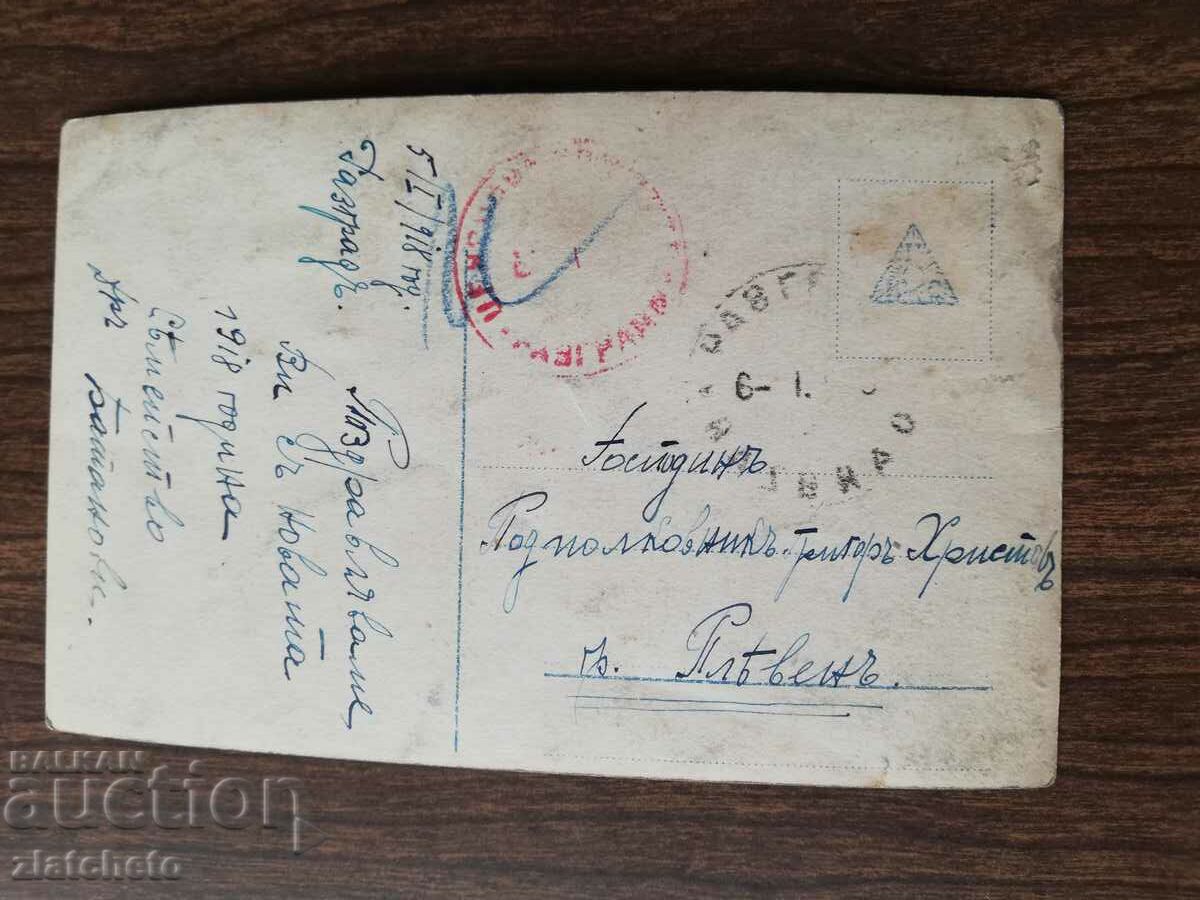 5/I/1918 год.
Разградъ.
Поздравляваме
Ви съ новата
1918 година
Сѣмейство
Др. Батанови.
РАЗГРАДЪ
РАЗГРАДЪ
6-1.
Господинъ
Подполковникъ Григоръ Христовъ
гр. Плѣвенъ.
BALKAN
auction
zlatcheto